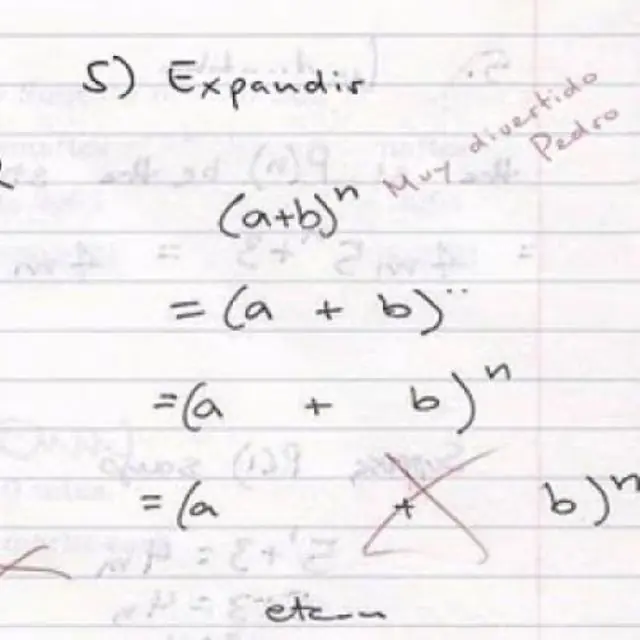 5) Expandir
Muy divertido
Pedro
(a+b)ⁿ
= (a + b)¨
=(a + b)ⁿ
= (a + b)ⁿ
etc...